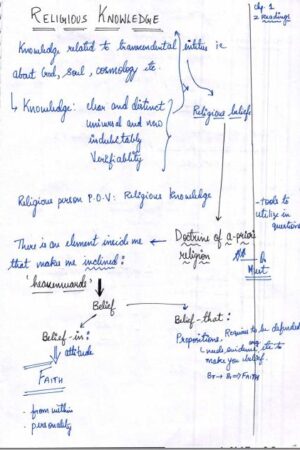 RELIGIOUS KNOWLEDGE
chp. 1
2 Readings
Knowledge related to transcendental entities ie
about God, soul, cosmology etc.
↳ Knowledge: clear and distinct
universal and new
indubitably
Verifiability
Religious beliefs
Religious person P.O.V: Religious Knowledge
- tools to
utilize in
questions
There is an element inside me ← Doctrine of a-priori
that makes me inclined: religion
'heavenwards'
Must
Belief
Belief-in:
attitude
Belief-that:
Propositions. Requires to be defended
evidence etc to
make you belief.
FAITH
- from within
- personality